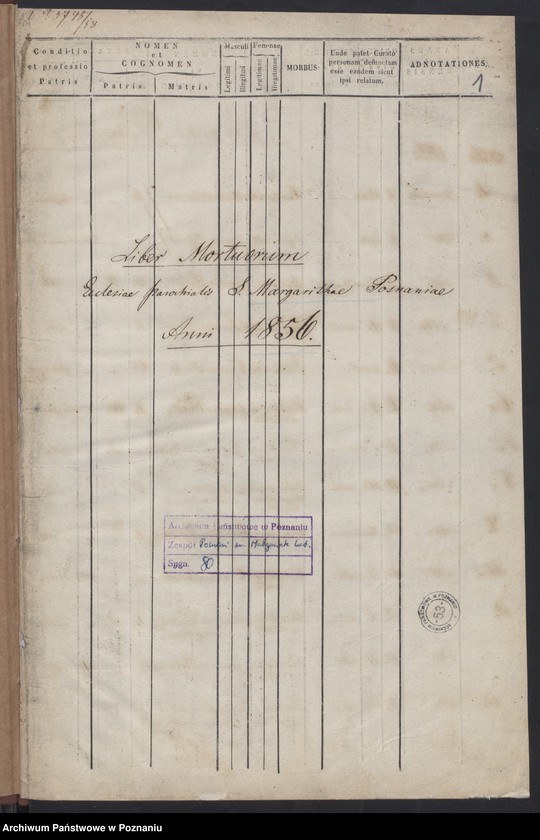 3743/58
Conditio et professio Patris
NOMEN et COGNOMEN
Patris
Matris
Masculi
Legitimi
Illegitimi
Femenae
Legitimae
Illegitimae
MORBUS.
Unde patet Curato personam defunctam esse eandem sicut ipsi relatum.
ADNOTATIONES.
1
Liber Mortuorum
Eclesiae parochialis S. Margarithae Posnaniae
Anni 1856.
Archiwum Państwowe w Poznaniu
Zespół Poznań
Sygn. 80
ARCHIWUM PAŃSTWOWE W POZNANIU
53
Archiwum Państwowe w Poznaniu